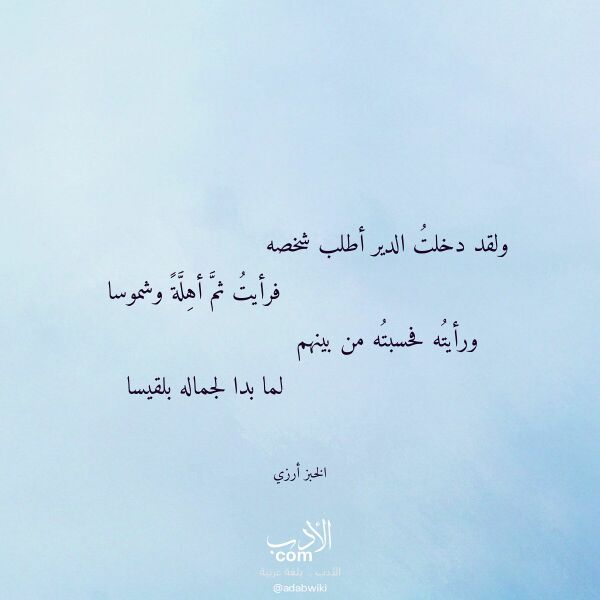 ولقد دخلتُ الدير أطلب شخصه
فرأيتُ ثمَّ أهِلَّةً وشموسا
ورأيتُه فحسبتُه من بينهم
لما بدا لجماله بلقيسا
الخبز أرزي
الأدب
com
الأدب .. بلغة عربية
@adabwiki